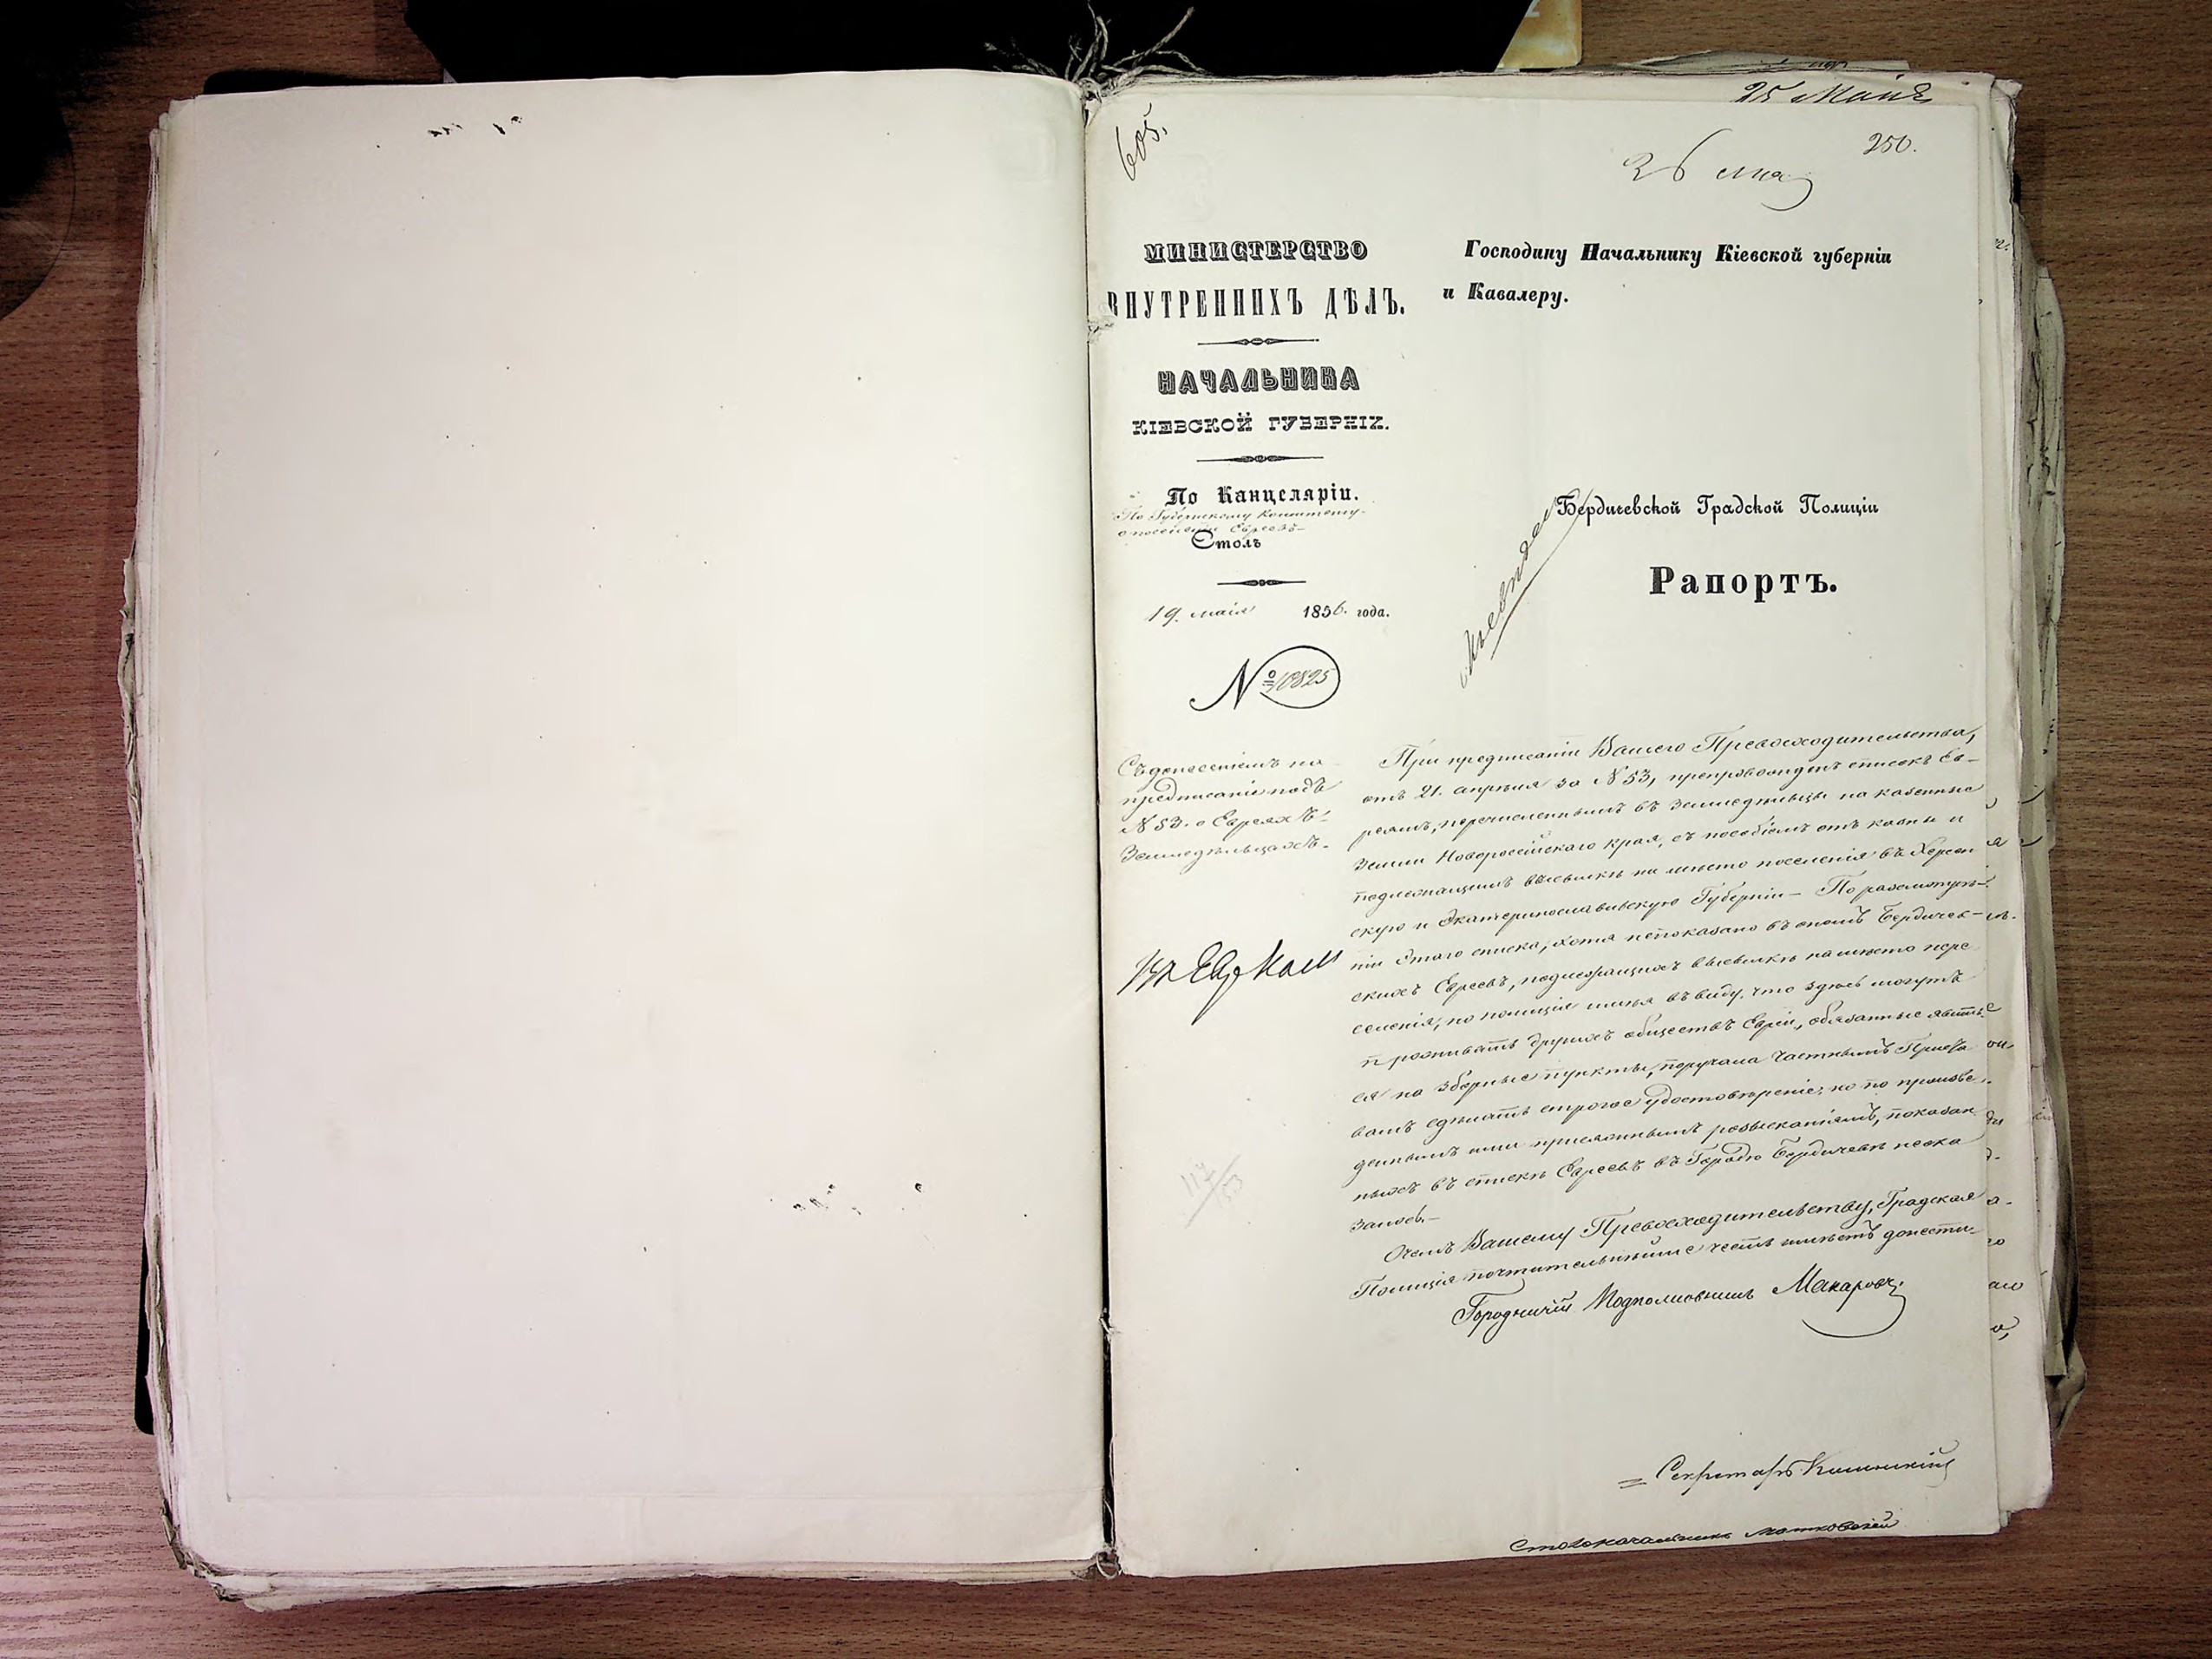 25 Маія
605.
250.
26 мая
МИНИСТЕРСТВО
ВНУТРЕННИХЪ ДѢЛЪ.
НАЧАЛЬНИКА
КІЕВСКОЙ ГУБЕРНІИ.
По Канцеляріи.
По Губернскому Комитету
о поселеніи Евреевъ
Столъ
19. маія 1856. года.
№ 10825
Съ донесеніемъ на
предписаніе подъ
№ 53. о Евреяхъ
Земледѣльцахъ.
Господину Начальнику Кіевской губерніи
и Кавалеру.
Бердичевской Градской Полиціи
Рапортъ.
При предписаніи Вашего Превосходительства,
отъ 21. апрѣля за № 53, препровожденъ списокъ Ев-
реямъ, перечисленнымъ въ Земледѣльцы на казенные
земли Новороссійскаго края, съ пособіемъ отъ казны и
подлежащимъ высылкѣ на мѣсто поселенія въ Херсон
скую и Екатеринославскую Губерніи – По разсмотрѣ-
ніи Этаго списка, хотя непоказано въ ономъ Бердичев-
скихъ Евреевъ, подлежащихъ высылкѣ на мѣсто пере
селенія, но полиція имѣя въ виду, что здѣсь могутъ
проживать другихъ обществъ Евреи, обязанные явить
ся на зборные пункты, поручала Частнымъ Приста
вамъ сдѣлать строгое удостовѣреніе, но по произве-
деннымъ ими присяжнымъ розысканіямъ, показан
ныхъ въ спискѣ Евреевъ въ Городѣ Бердичевѣ неока
залось.–
О чемъ Вашему Превосходительству, Градская
Полиція почтительнѣйше честь имѣетъ донести.
Городничій Подполковникъ Макаровъ
117/53
Секретарь
Столоначальникъ